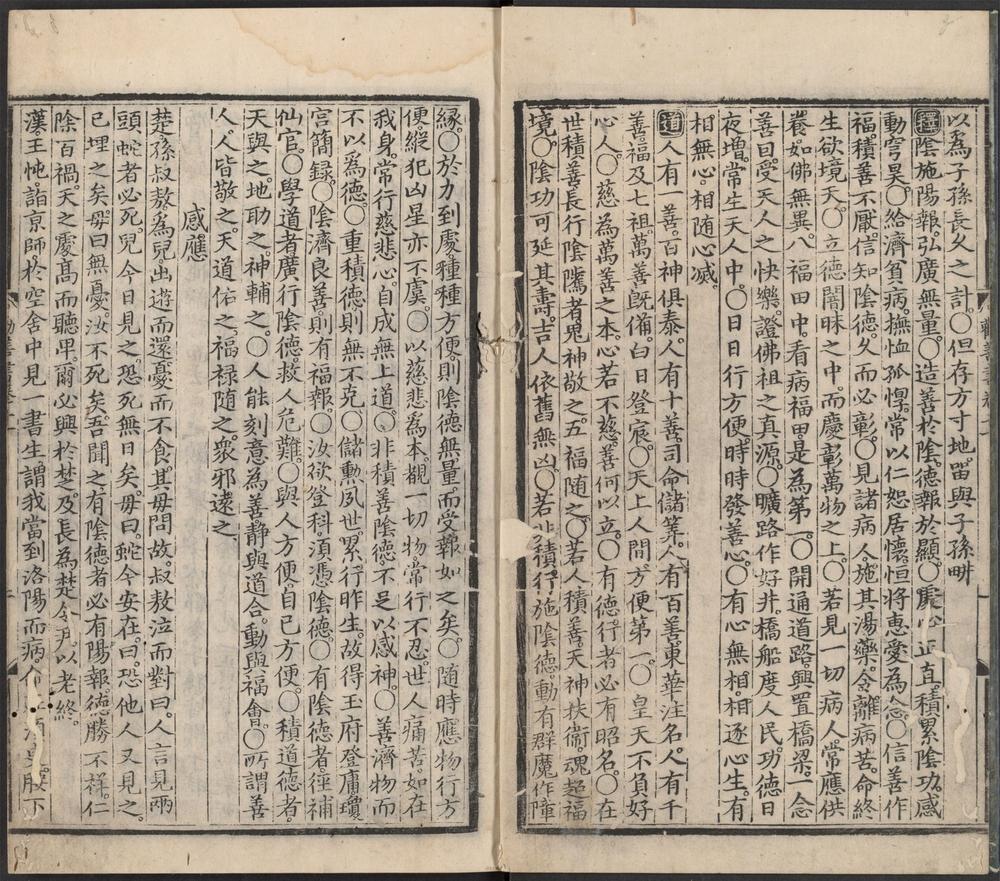 以爲子孫長久之計〇但存方寸地留與子孫畊
釋陰施陽報弘廣無量〇造善於陰德報於顯〇處心正直積累陰功感
動穹昊〇給濟貧病撫恤孤惸常以仁恕居懷恒將惠愛為念〇信善作
福積善不厭信知陰德久而必彰〇見諸病人施其湯藥令離病苦命終
生欲境天〇立德闇昧之中而慶彰萬物之上〇若見一切病人常應供
養如佛無異八福田中看病福田是為第一〇開通道路興置橋梁一念
善因受天人之快樂證佛祖之真源〇曠路作好井橋船度人民功德日
夜增常生天人中〇日日行方便時時發善心〇有心無相相逐心生有
相無心相隨心滅
道人有一善百神俱泰人有十善司命儲筭人有百善東華注名人有千
善福及七祖萬善既備白日登宸〇天上人間方便第一〇皇天不負好
心人〇慈為萬善之本心若不慈善何以立〇有德行者必有昭名〇在
世積善長行陰隲者鬼神敬之五福隨之〇若人積善天神扶衞魂超福
境〇陰功可延其壽吉人依舊無凶〇若非積行施陰德動有群魔作障
緣〇於力到處種種方便則陰德無量而受報如之矣〇隨時應物行方
便縱犯凶星亦不虞〇以慈悲爲本觀一切物常行不忍世人痛苦如在
我身常行慈悲心自成無上道〇非積善陰德不足以感神〇善濟物而
不以爲德〇重積德則無不克〇儲勳夙世累行昨生故得玉府登庸瓊
宮簡録〇陰濟良善則有福報〇汝欲登科須憑陰德〇有陰德者徑補
仙官〇學道者廣行陰德救人危難〇與人方便自已方便〇積道德者
天與之地助之神輔之〇人能刻意為善靜與道合動與福會〇所謂善
人人皆敬之天道佑之福禄随之衆邪遠之
感應
楚孫叔敖爲兒出遊而還憂而不食其毋問故叔敖泣而對曰人言見兩
頭蛇者必死兒今日見之恐死無日矣毋曰蛇今安在曰恐他人又見之
已埋之矣毋曰無憂汝不死矣吾聞之有陰德者必有陽報德勝不祥仁
除百禍天之處髙而聽卑爾必興於楚及長為楚令尹以老終
漢王忳詣亰師於空舍中見一書生謂我當到洛陽而病命腰下